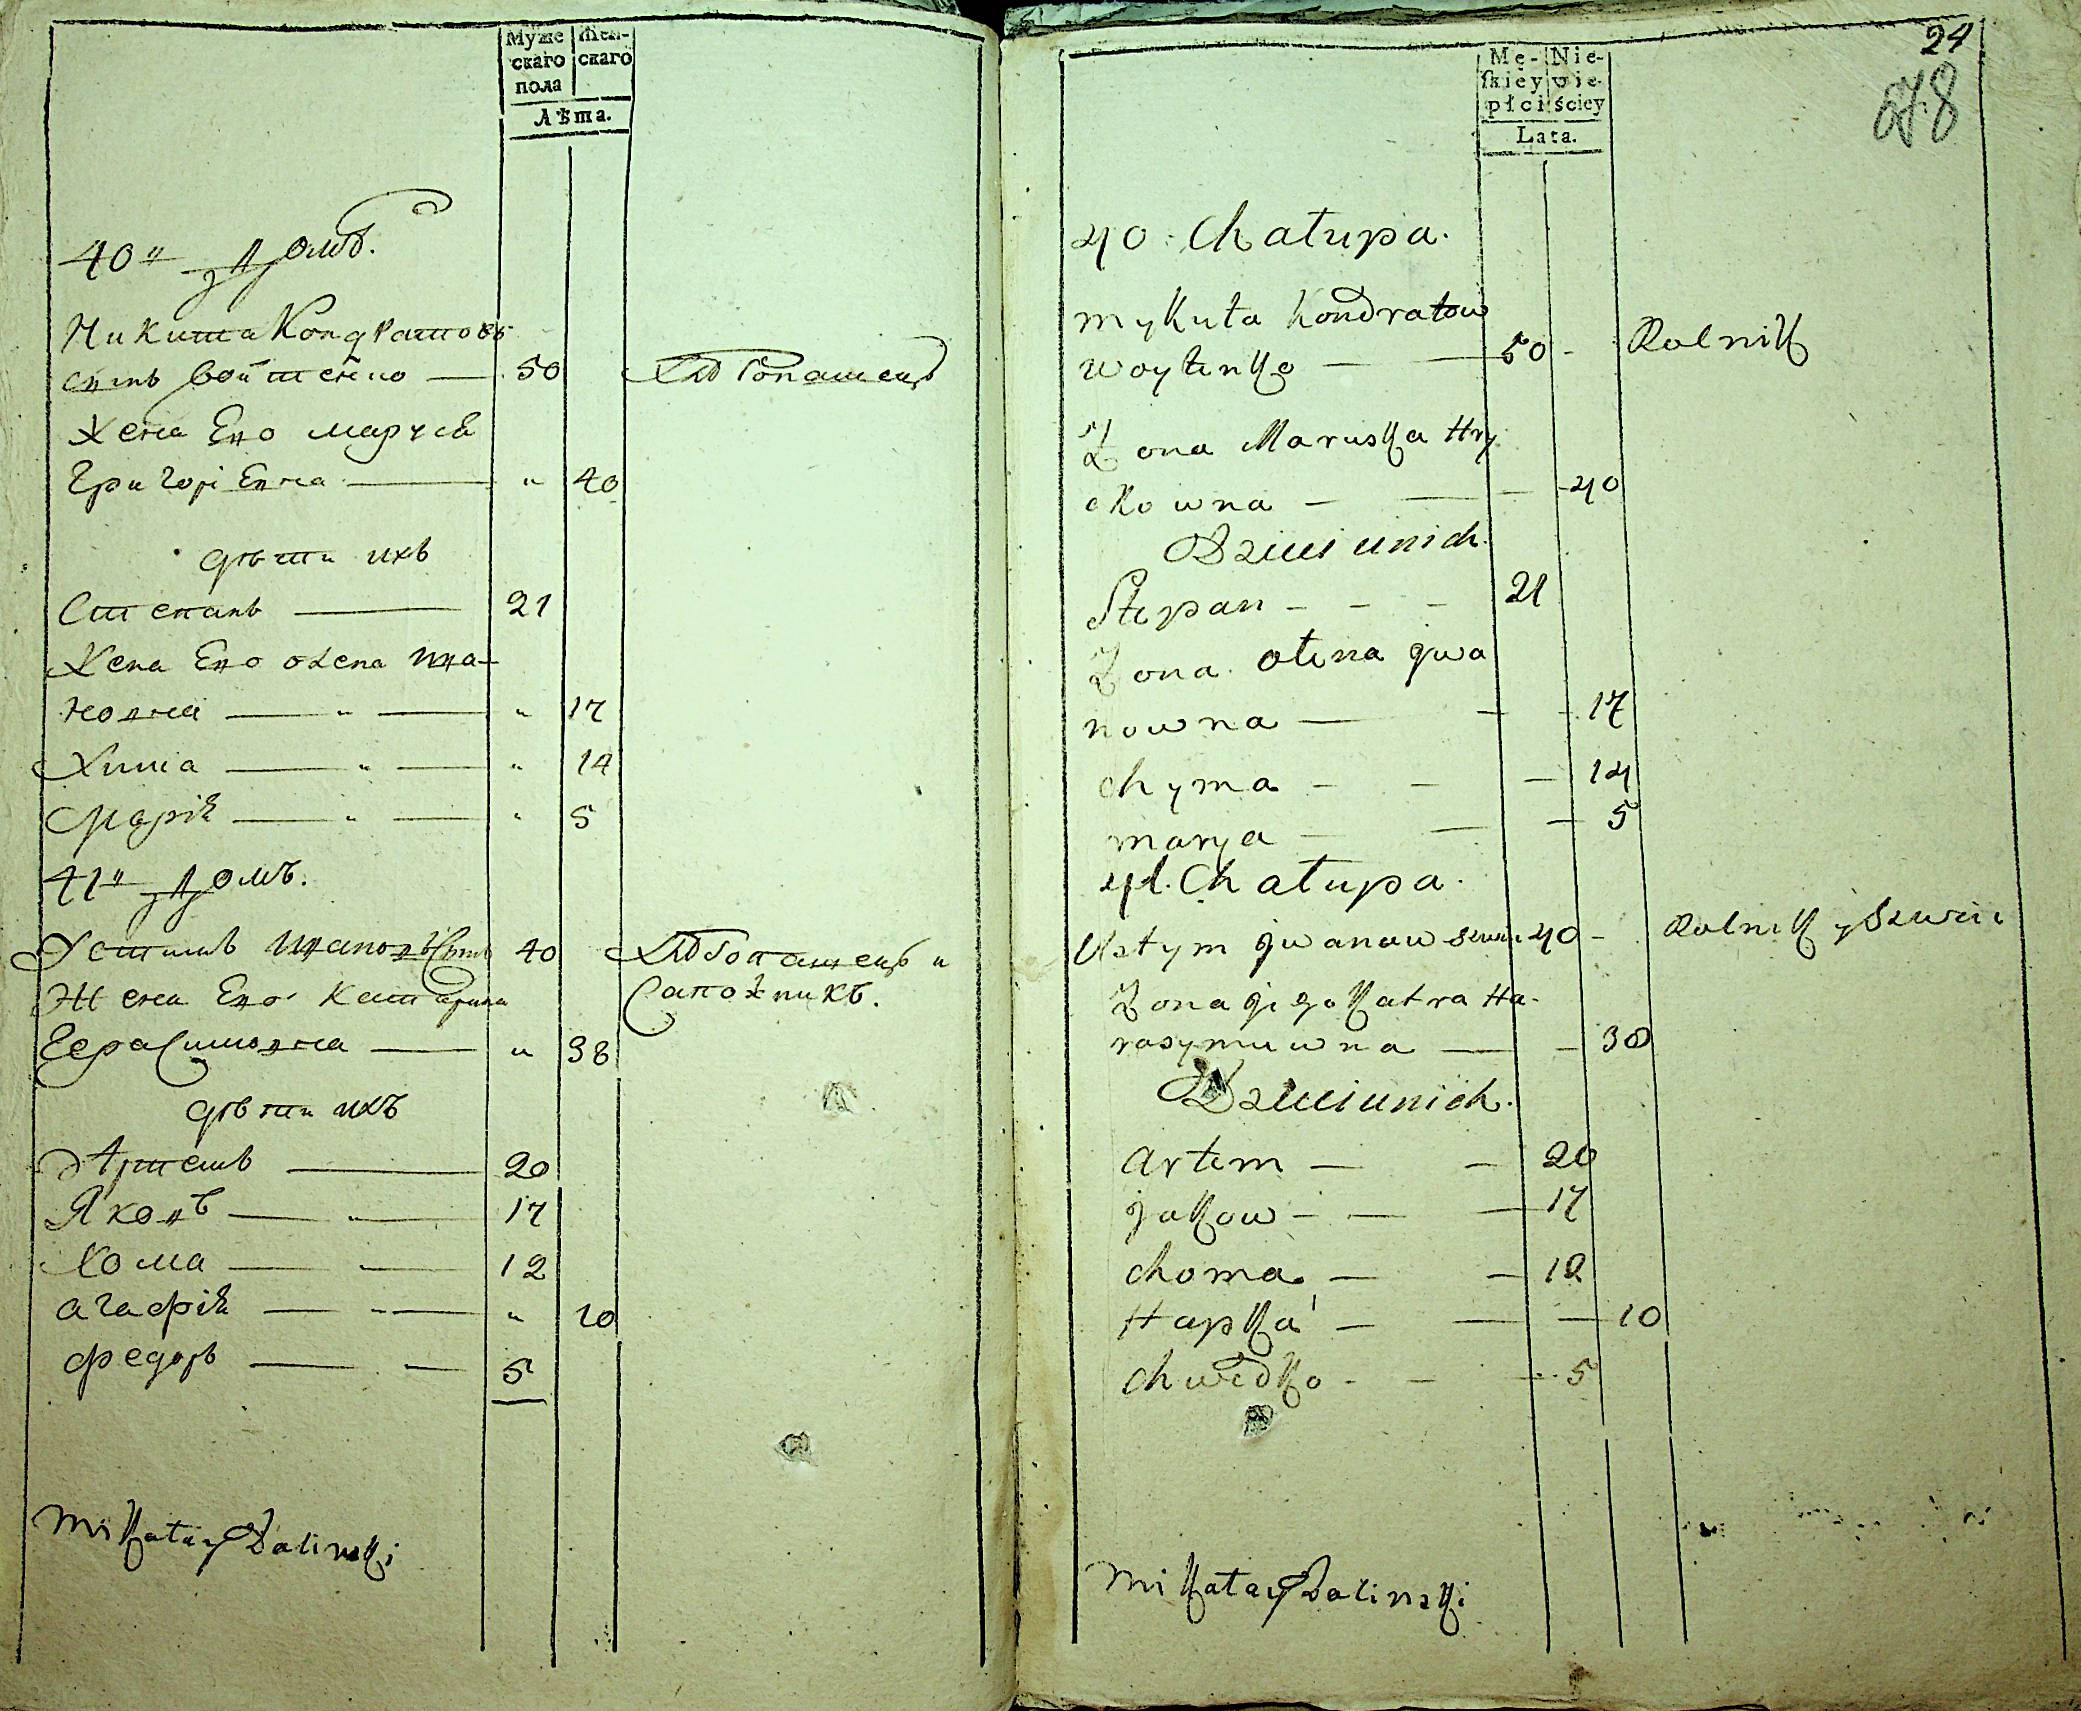 Муже
скаго
пола
Жен-
скаго
Лѣта.
40" Домъ.
Никита Кондратовъ
сынъ Войтенко — 50 Хлѣбопашецъ
Жена Ево Маруся
Григоріевна — " 40
дѣти ихъ
Степанъ — 21
Жена Ево олена Ива-
новна — " — " 17
Химіа — " — " 14
Марія — " — " 5
41" Домъ.
Устимъ Ивановъ 40 Хлѣбопашецъ и
Жена Ево Катарина Сапожникъ.
Герасимовна — " 38
дѣти ихъ
Артемъ — 20
Яковъ — " — 17
Хома — " — 12
агафія — " — " 10
федоръ — — 5
Mikołay Daliński
24
678
Mę-
skiey
płci
Nie-
wie-
ściey
Lata.
40. Chałupa.
mykita Kondratow
woytenko — — 50 - Rolnik
Zona Maruska Hry
cko wna — — — 40
Dzieci unich.
Stepan - - - 21
Zona. ołena jwa
nowna — — - 17
chyma - - — 14
marya — — — 5
41. Chałupa.
Ustym jwanow Szwiec 40 - Rolnik y Szwiec
Zona jego Katra Ha-
rasymuwna — — 38
Dzieci unich.
artem — — 20
jakow - — — 17
choma — — 12
Hapka — — — 10
chwedko - — — 5
Mikołay Daliński